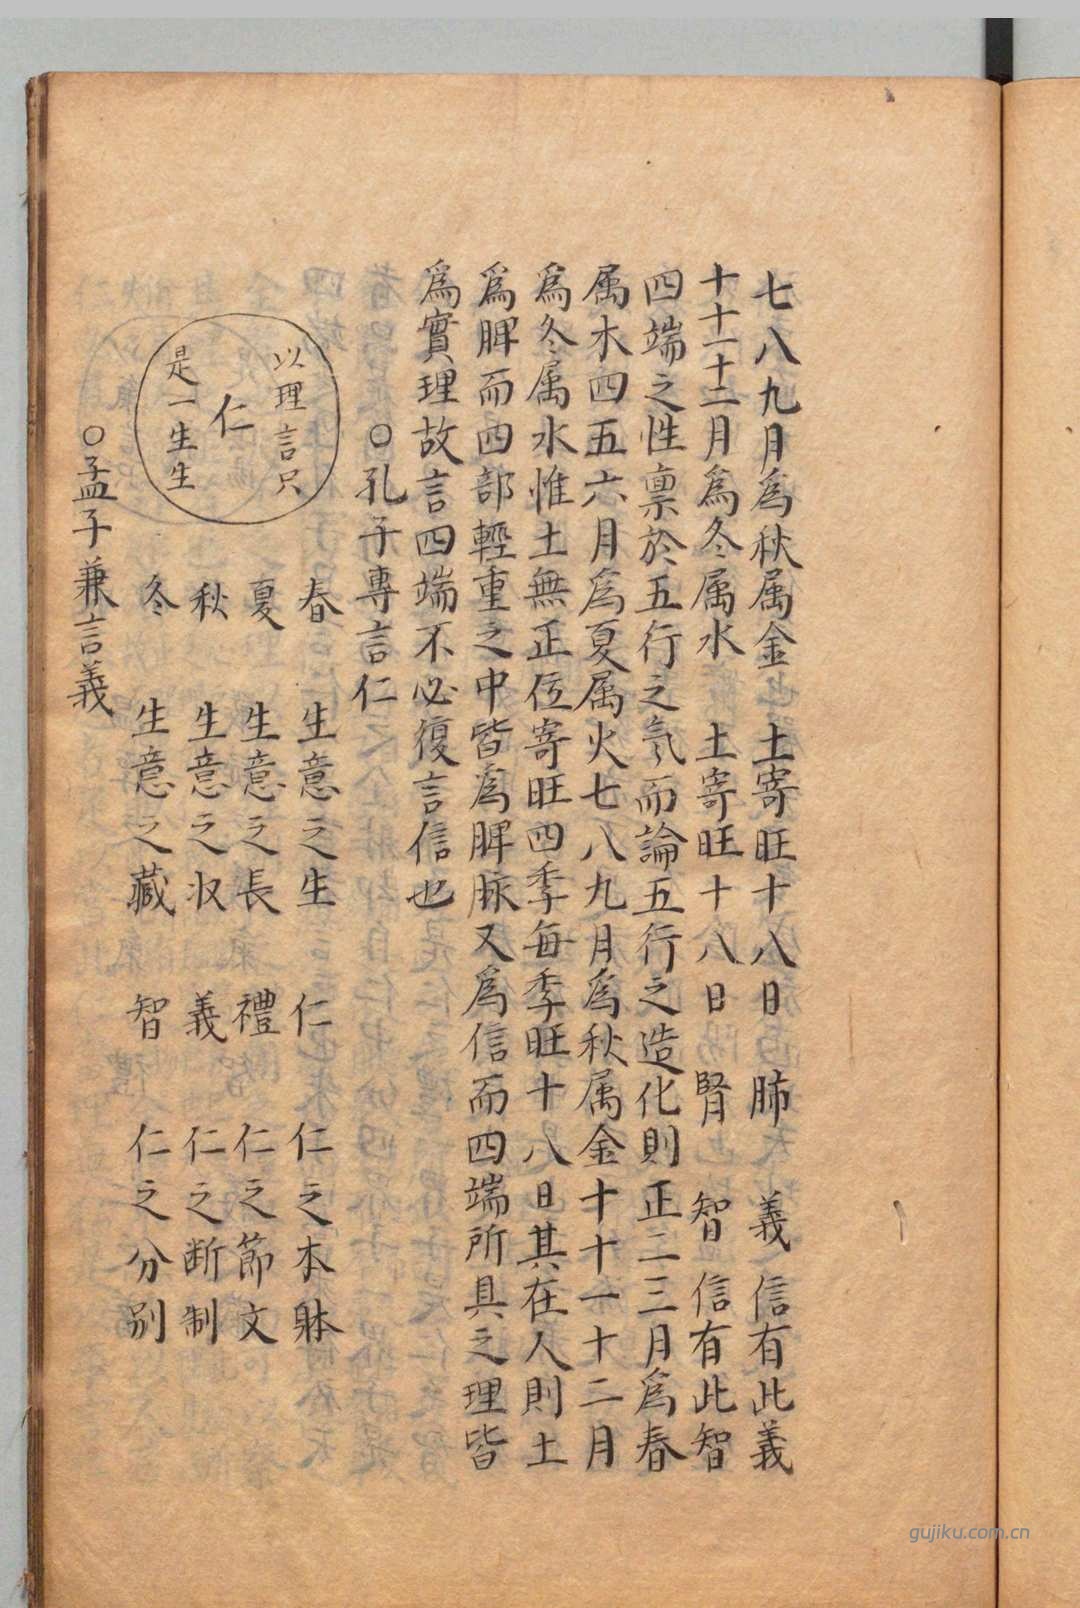 七八九月爲秋属金　土寄旺十八日　肺　義　信有此義
十十一十二月爲冬属水　土寄旺十八日　腎　智　信有此智
四端之性禀於五行之氣而論五行之造化則正二三月爲春
属木四五六月爲夏属火七八九月爲秋属金十十一十二月
爲冬属水惟土無正位寄旺四季每季旺十八日其在人則土
爲脾而四部輕重之中皆爲脾脉又爲信而四端所具之理皆
爲實理故言四端不必復言信也
○孔子專言仁
以理言只
仁
是一生生
春　生意之生　仁　仁之本躰
夏　生意之長　禮　仁之節文
秋　生意之収　義　仁之断制
冬　生意之藏　智　仁之分别
○孟子兼言義
gujiku.com.cn